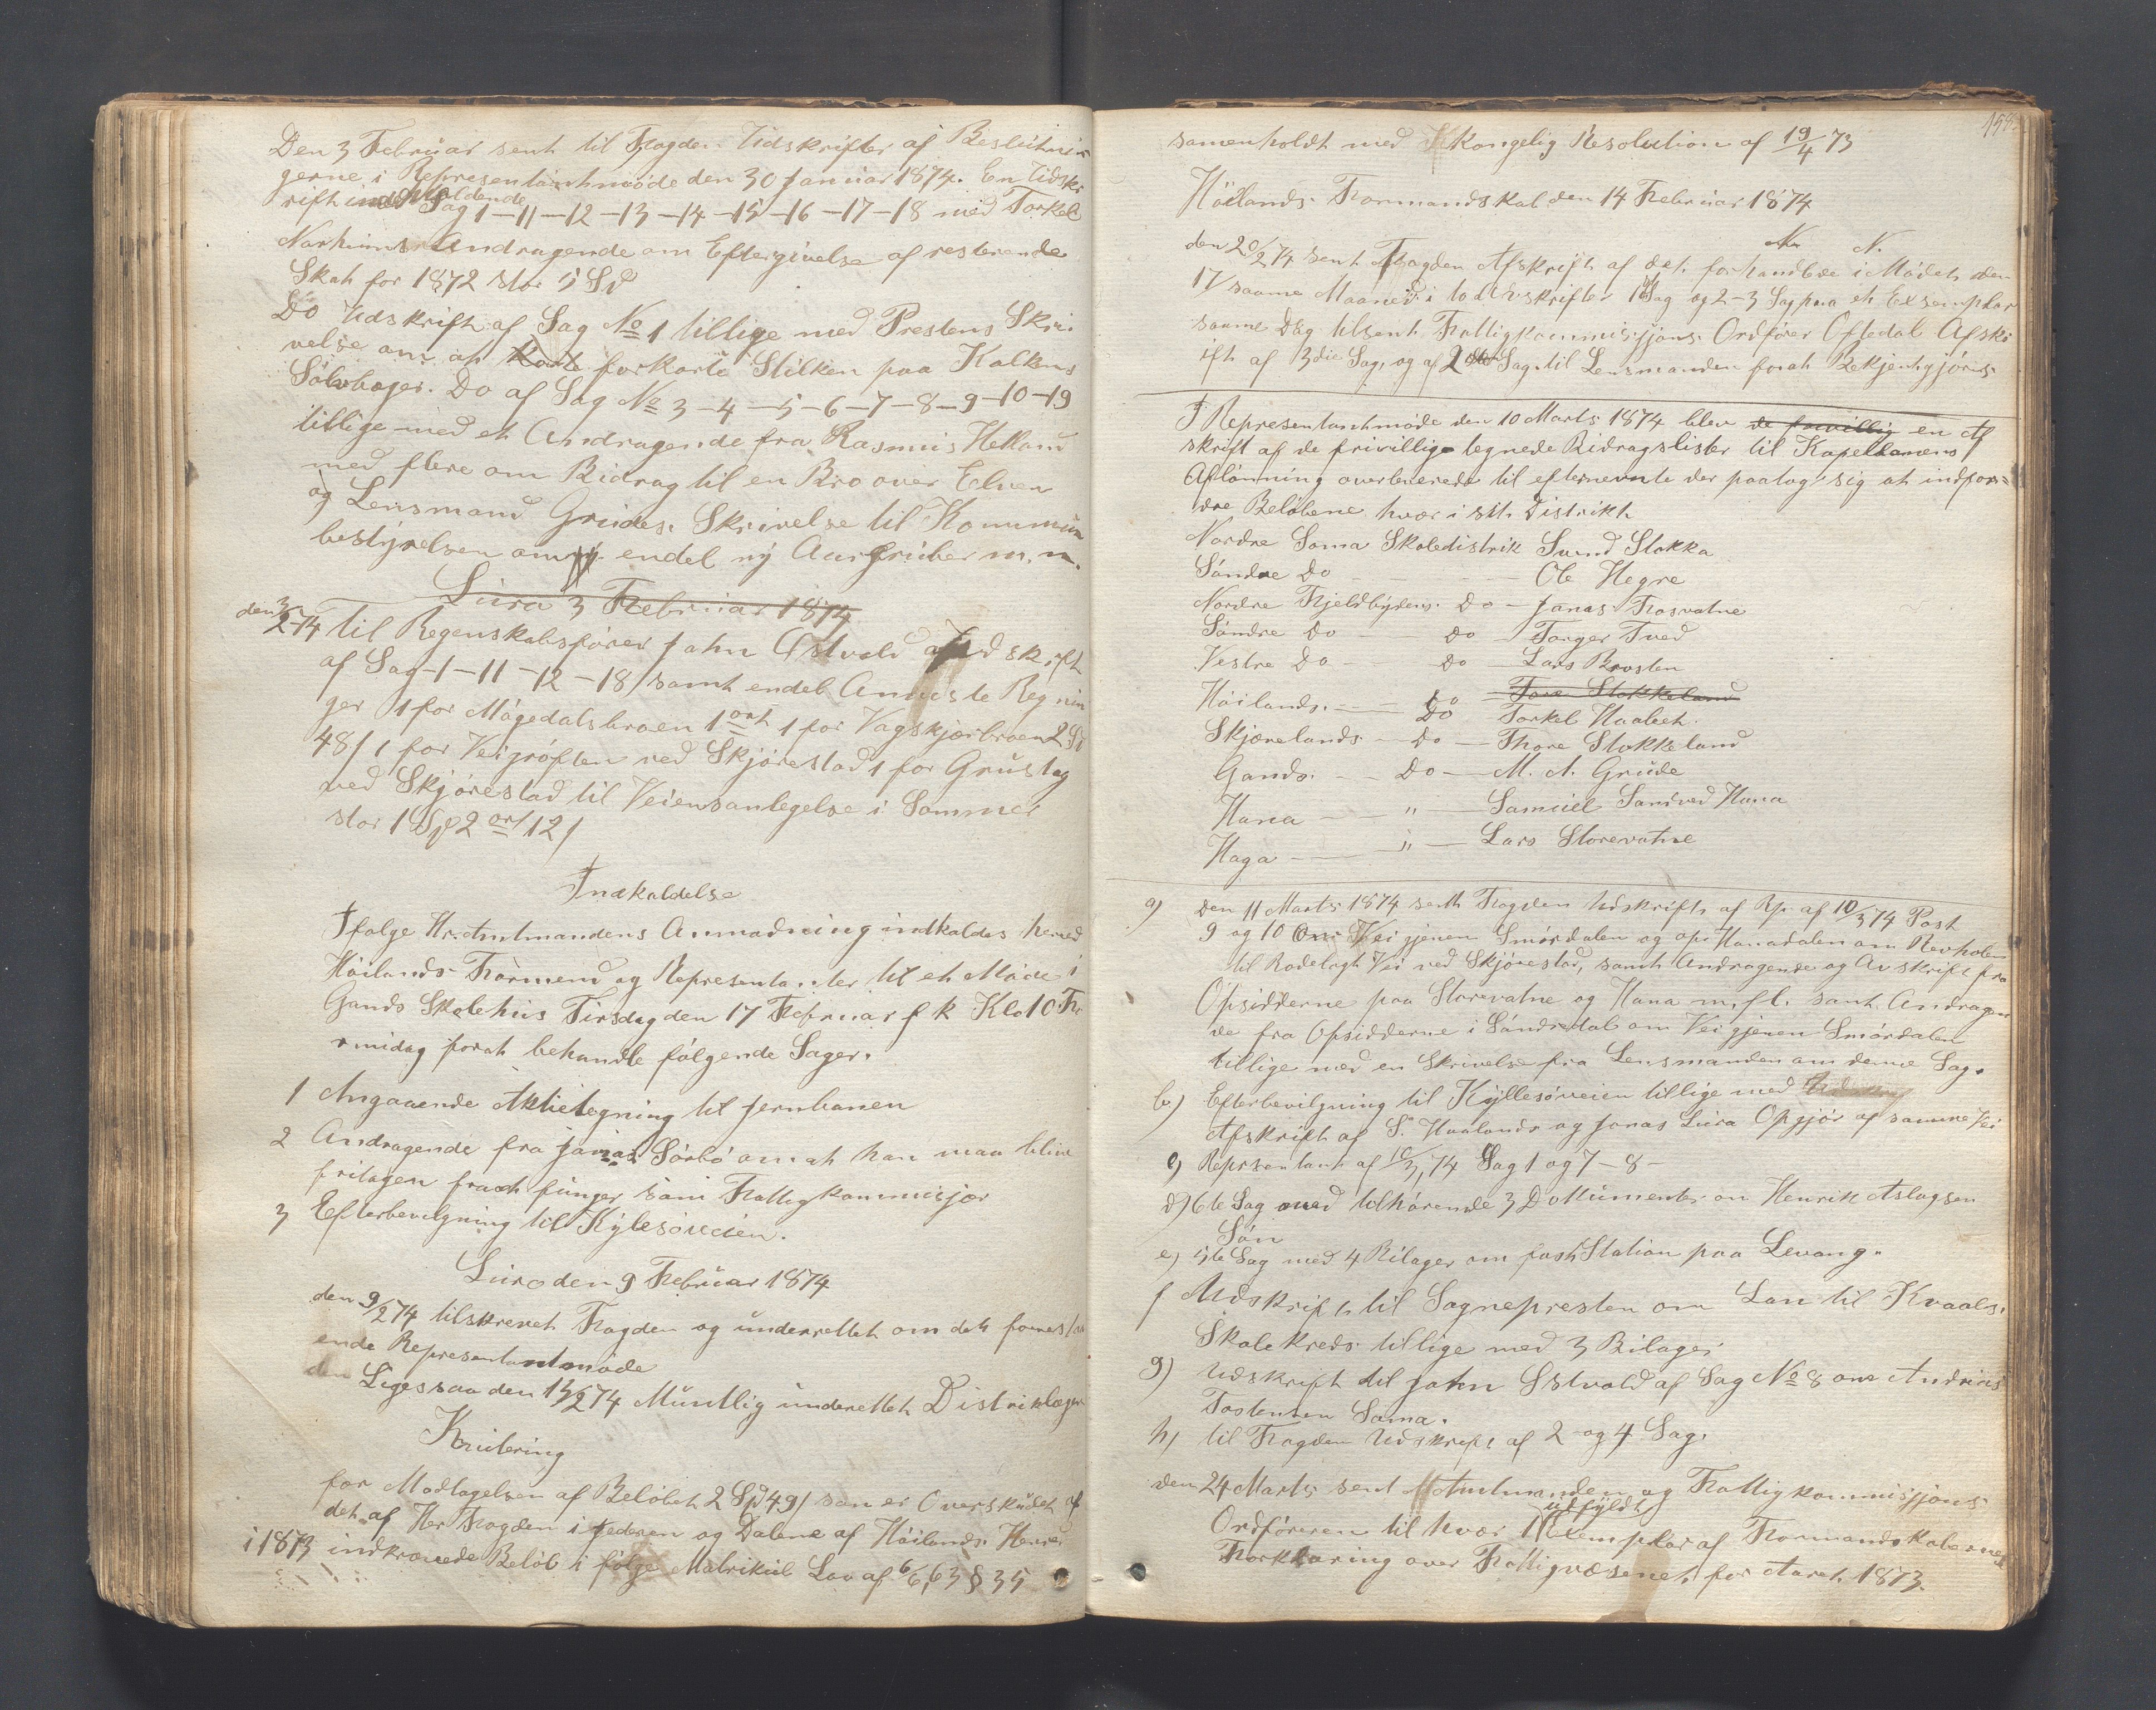 Den 3 Februar sent til Fogden Udskrifter af Beslutnin
gerne i Representantmøde den 30 Januar 1874. En Udsk
rift indeholdende
Sag 1-11-12-13-14-15-16-17-18 med Torkel
Norheims Andragende om Eftergivelse af resterende
Skat for 1872 stor 5 Spd
Do Udskrift af Sag No 1 tillige med Prestens Skri
velse om at forkorte Stilken paa Kalkens
Sølvbæger. Do af Sag No 3-4-5-6-7-8-9-10-19
tillige med et Andragende fra Rasmus Helland
med flere om Bidrag til en Bro over Elven
og Lensmand Grudes Skrivelse til Kommun
bestyrelsen om endel ny Aurgruber m.m.
Lura 3 Februar 1874
den 3/2 74 til Regenskabsfører John Østvold Udskrift
af Sag 1-11-12-18 samt endel Anviste Regnin
ger 1 for Mågedalsbroen 1 ort 1 for Vagskjærbroen 2 Sp
48/ 1 for Veigrøften ved Skjørestad 1 for Grustag
ved Skjørestad til Veiensanlegelse i Sommer
stor 1 Sp 2 ort 12/
Indkaldelse
Ifølge Hr. Amtmandens Anmodning indkaldes herved
Höilands Formend og Representanter til et Møde i
Gands Skolehus Tirsdag den 17 Februar f k Klo 10 Fo
rmidag forat behandle følgende Sager.
1 Angaaende Aktietegning til Jernbanen
2 Andragende fra Jonas Sørbø om at han maa blive
fritagen fra at funger som Fattigkommisjær
3 Efterbevilgning til Kylesøveien.
Lura den 9 Februar 1874
den 9/2 74 tilskrevet Fogden og underrettet om det forresta
ende Representantmøde
Ligessaa den 13/2 74 Muntlig underettet Distriklægen
Kvitering
for Modtagelsen af Beløbet 2 Spd 49/ som er Overskudet af
det af Her Fogden i Jederen og Dalene af Höilands Herred
i 1873 indkrævede Beløb i følge Matrikul Lov af 6/6 63 § 35
155
samenholdt med Kongelig Resolution af 19/4 73
Höilands Formandskab den 14 Februar 1874
N. N.
den 20/2 74 sent Fogden Afskrift af det forhandlede i Mødet den
17 samme Maaned i to Udskrifter 1 Sag og 2-3 Sag paa et Exsemplar
samme Dag tilsent Fattigkommissjons Ordfører Oftedal Afskr
ift af 3die Sag, og af 2den Sag til Lensmanden forat Bekjentgjøres
I Representantmøde den 10 Marts 1874 blev de frivillig en Af
skrift af de frivillige tegnede Bidragslister til Kapellanens
Aflönning overleverede til efternevnte der paatog sig at indfor=
dre Beløbene hver i sit Distrikt
Nordre Soma Skoledistrik Svend Stokka
Söndre Do - - - Ole Hegre
Nordre Fjeldbydens Do - Jonas Fosvatne
Söndre Do - Do - Torger Tved
Vestre Do - Do - Lars Brosten
Höilands - Do Tore Stokkeland
Do Torkel Haabet.
Skjævelands - Do - Thore Stokkeland
Gands - Do - M. A. Grude
Hana - " - Samuel Sandved Hana
Haga - " - Lars Storevatne
a) Den 11 Marts 1874 sent Fogden Udskrift af Rp. af 10/3 74 Post
9 og 10 Vei gjenem Smördalen og op Hanadalen om Revholen
til Rodelagt Vei ved Skjörestad, samt Andragende og Avskrift fra
Opsidderne paa Storevatne og Hana m.fl. samt Andragen
de fra Opsidderne i Söndredal om Vei gjenem Smördalen
tillige med en Skrivelse fra Lensmanden om denne Sag.
b) Efterbevilgning til Kyllesöveien tillige med
Afskrift af S. Haalands og Jonas Lura Opgjör af samme Vei
c) Reprsentant af 10/3 74 Sag 1 og 7-8-
d) 6te Sag med tilhörende 3 Dokumenter om Henrik Aslagsen
Sön
e) 5te Sag med 4 Bilager om fast Station paa Levang.
f Udskrift til Sognepresten om Lan til Kvaals
Skolekreds tillige med 3 Bilager
g) Udskrift til John Østvold af Sag No 8 om Andreas
Tostensen Soma.
h) til Fogden Udskrift af 2 og 4 Sag.
den 24 Marts sent Amtmanden og Fattigkommissjons
Ordföreren til hver 1 utfyldt Exemplar af Formandskabernes
Forklaring over Fattigvæsenet for Aaret 1873.